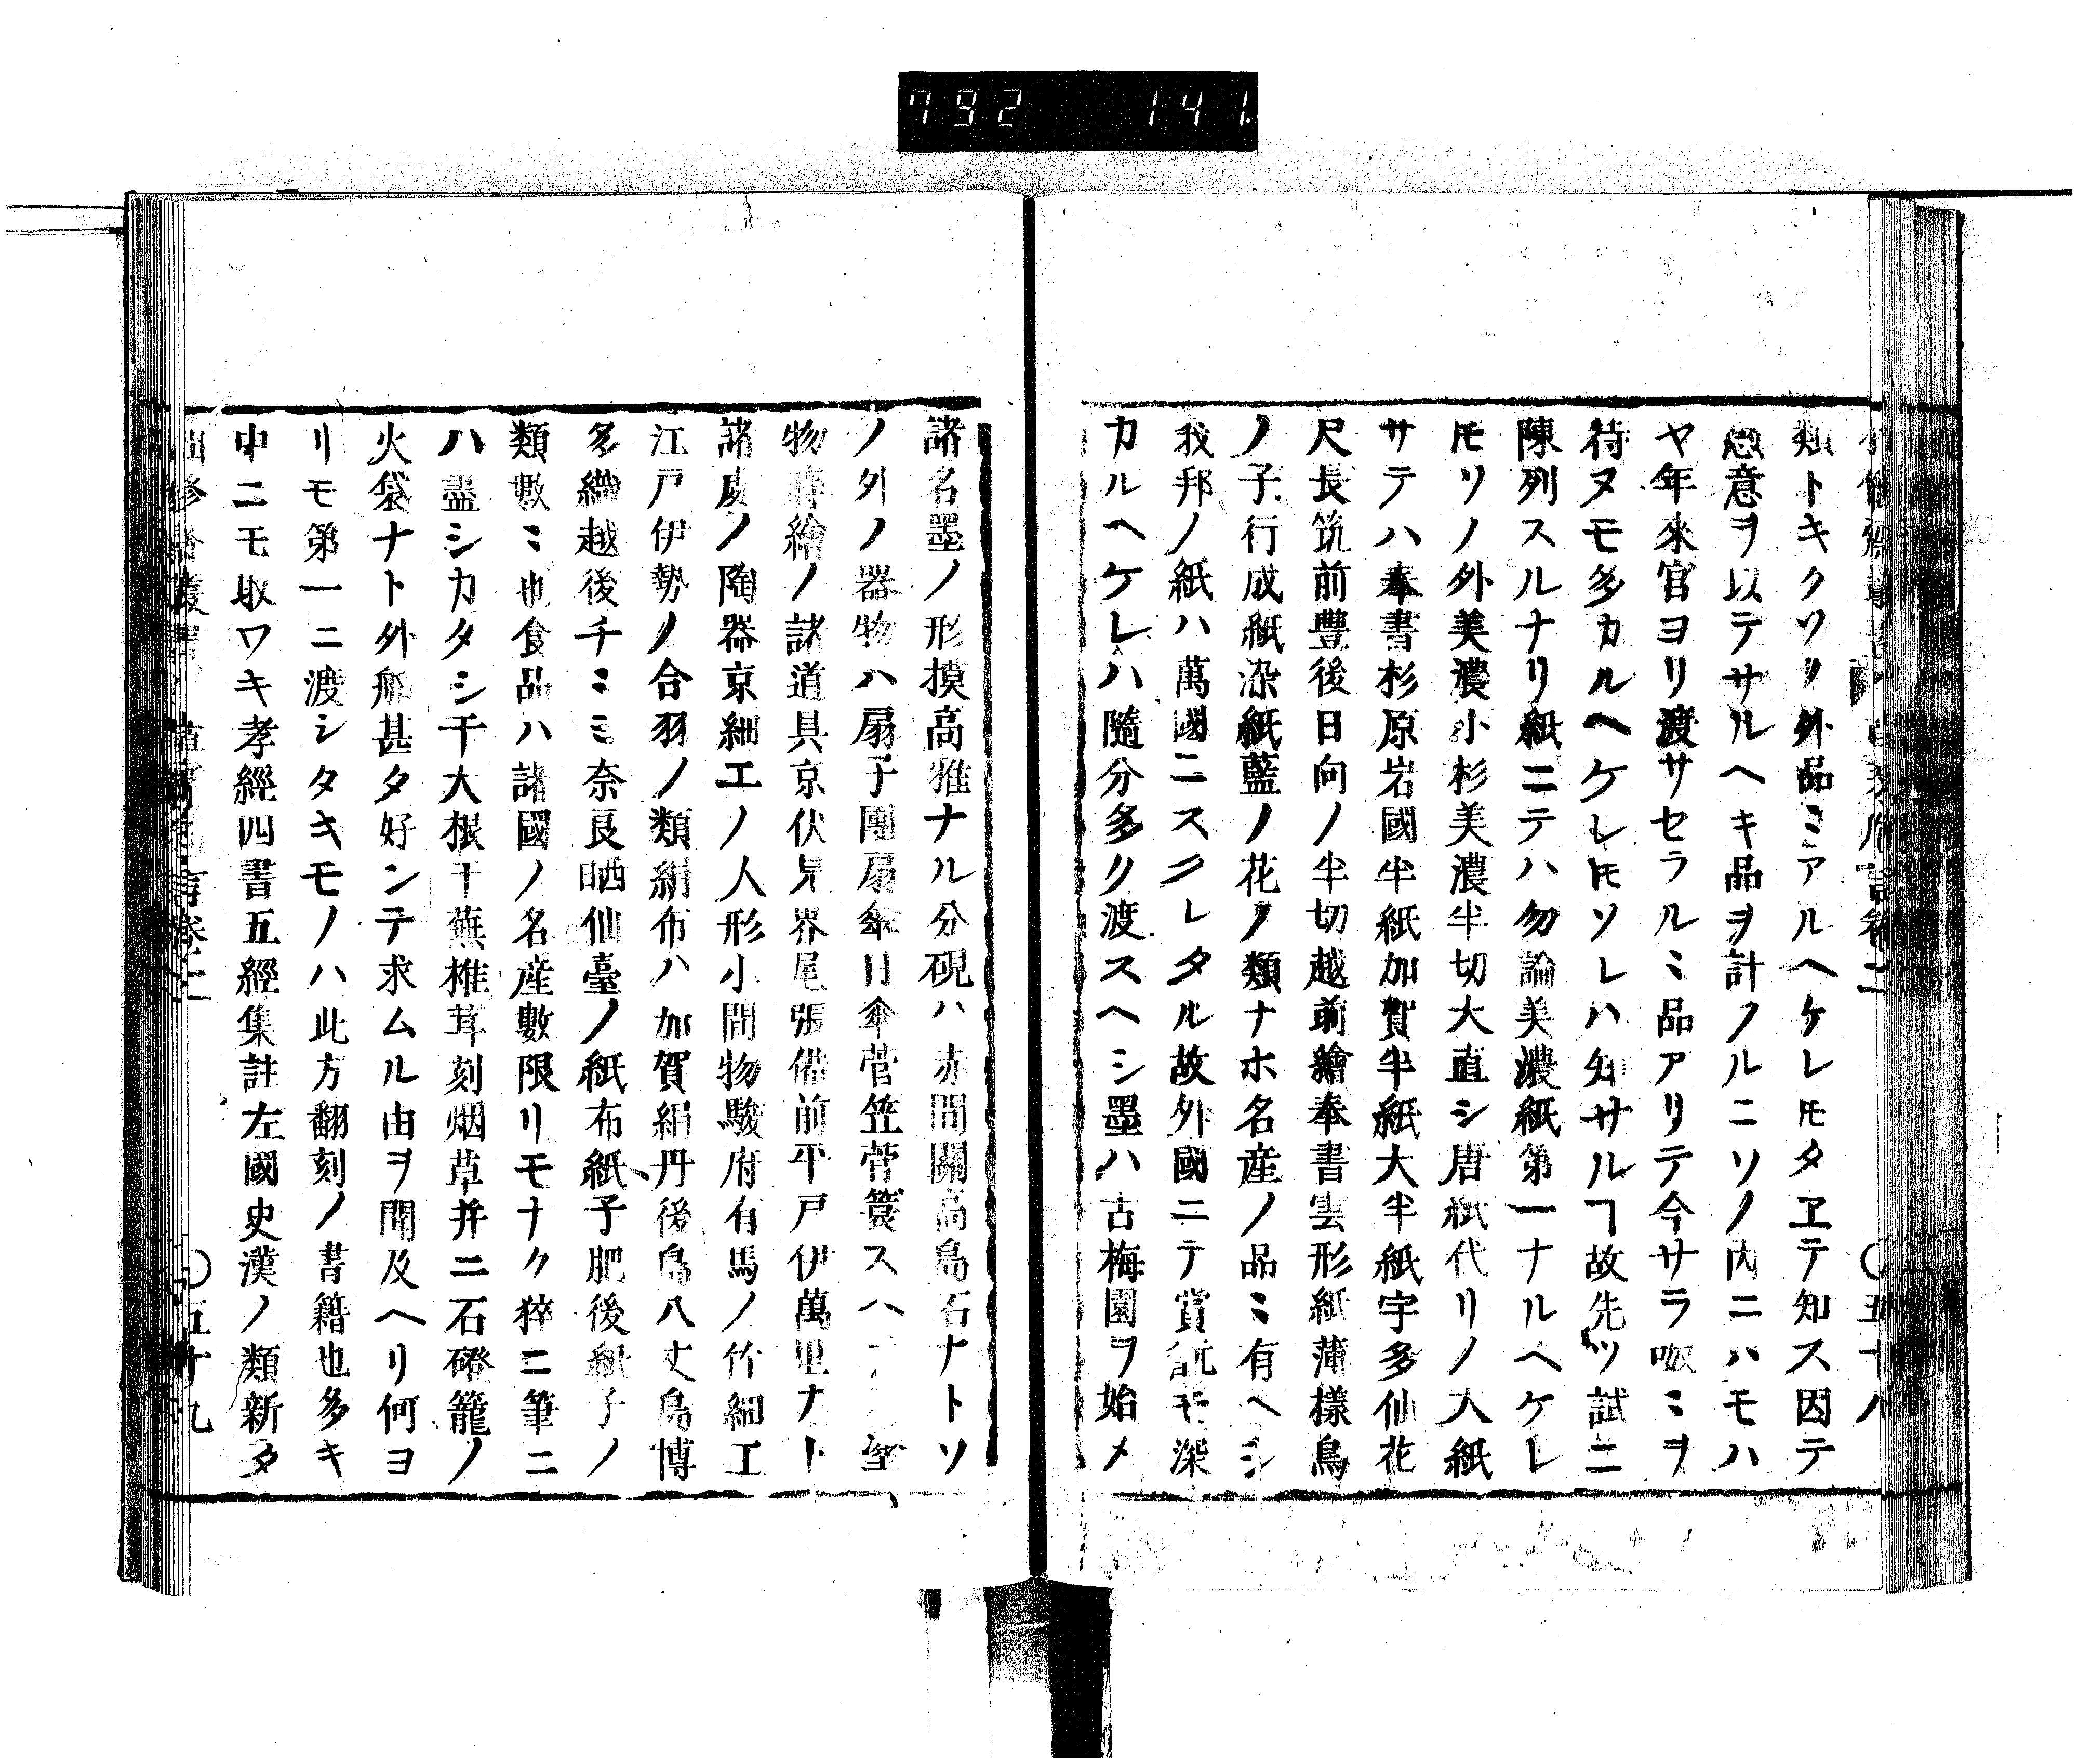 792 141.
類トキクソノ外品ミアルヘケレ𪜈タヱテ知ス因テ
愚意ヲ以テサルヘキ品ヲ計ノルニソノ内ニハモハ
ヤ年來官ヨリ渡サセラルミ品アリテ今サラ呶ミヲ
待ヌモ多カルヘケレ𪜈ソレハ知サルヿ故先ツ試ニ
陳列スルナリ紙ニテハ勿論美濃紙第一ナルヘケレ
𪜈ソノ外美濃小杉美濃半切大直シ唐紙代リノ入紙
サテハ奉書杉原岩國半紙加賀半紙大半紙宇多仙花
尺長筑前豐後日向ノ半切越前繪奉書雲形紙薄樣鳥
ノ子行成紙染紙藍ノ花ノ類ナホ名産ノ品ミ有ヘシ
我邦ノ紙ハ萬國ニスクレタル故外國ニテ賞翫モ深
カルヘケレハ隨分多ク渡スヘシ墨ハ古梅園ヲ始メ
諸名墨ノ形摸高雅ナル分硯ハ赤間關高島石ナトソ
ノ外ノ器物ハ扇子團扇傘日傘菅笠菅簑スヘ
物蒔繪ノ諸道具京伏見界尾張備前平戸伊萬里ナト
諸處ノ陶器京細工ノ人形小間物駿府有馬ノ竹細工
江戸伊勢ノ合羽ノ類絹布ハ加賀絹丹後島八丈島博
多織越後千ミミ奈良晒仙臺ノ紙布紙子肥後紙子ノ
類數ミ也食品ハ諸國ノ名産數限リモナク猝ニ筆ニ
ハ盡シカタシ干大根干蕪椎茸刻烟草并ニ石磴籠ノ
火袋ナト外船甚タ好ンテ求ムル由ヲ聞及ヘリ何ヨ
リモ第一ニ渡シタキモノハ此方翻刻ノ書籍也多キ
中ニモ取ワキ孝經四書五經集註左國史漢ノ類新タ
五十九